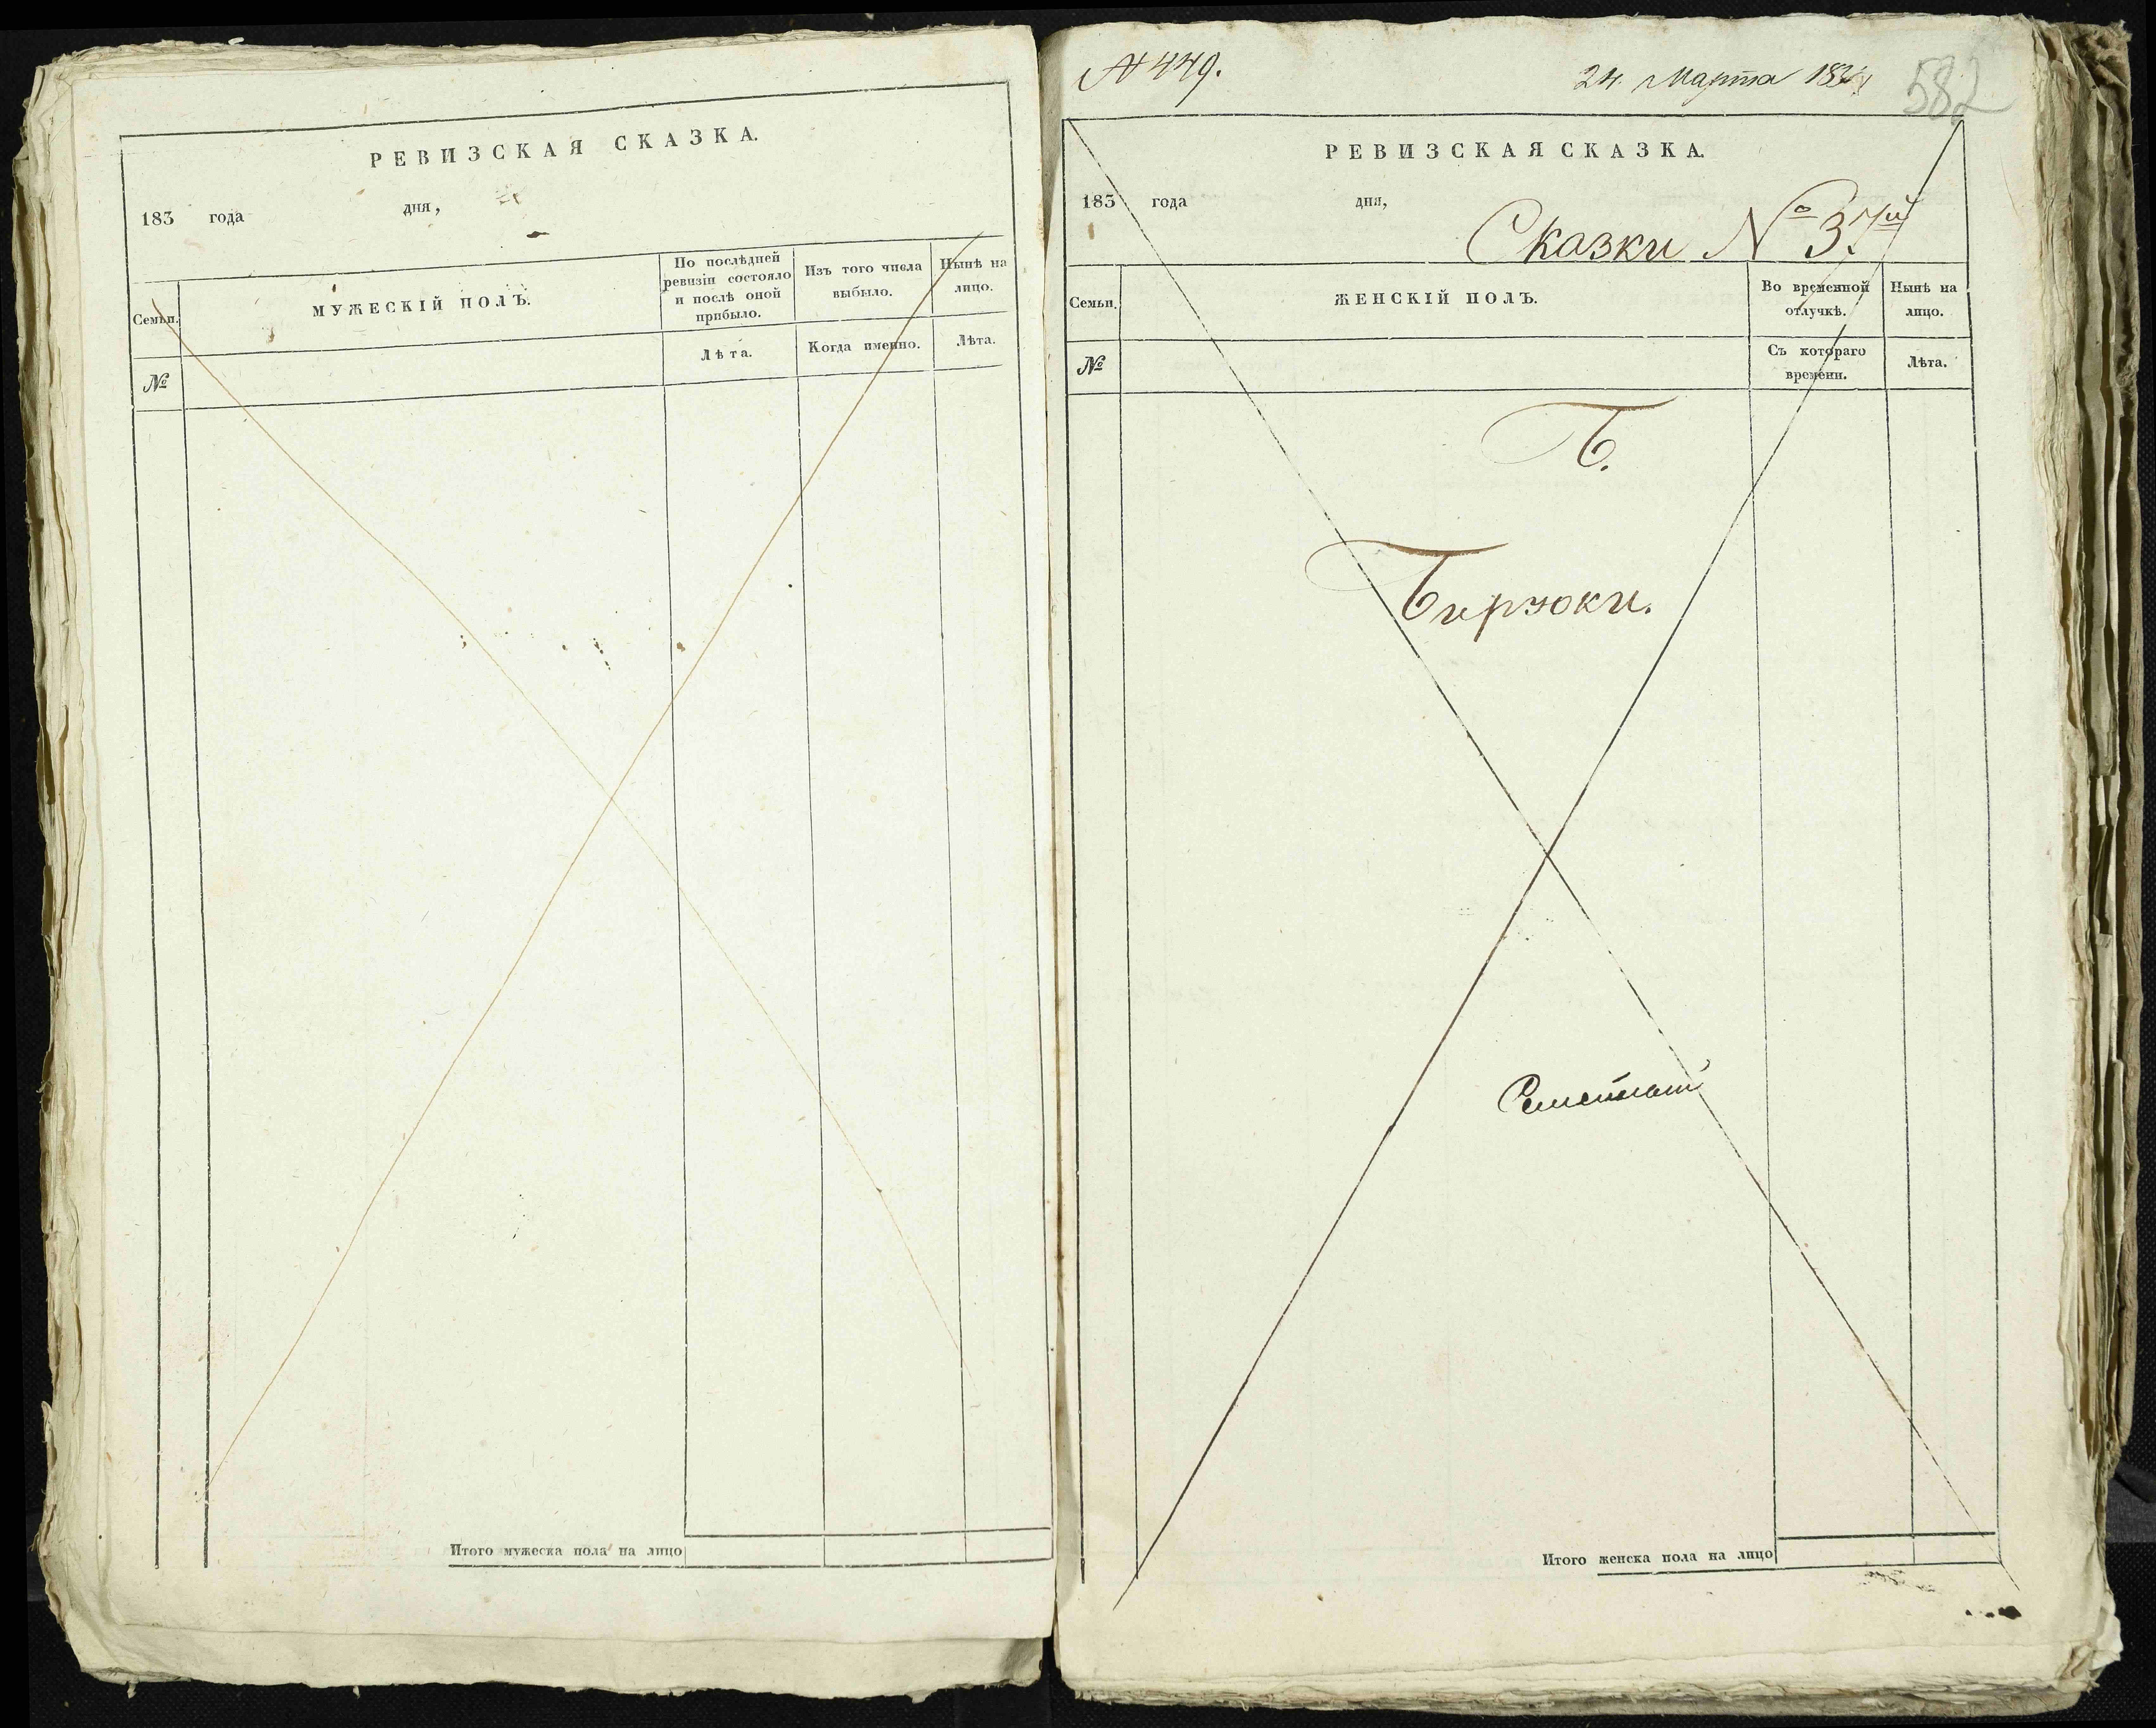 РЕВИЗСКАЯ СКАЗКА.
183 года дня,
Семьи.
МУЖЕСКІЙ ПОЛЪ.
По послѣдней
ревизіи состояло
и послѣ оной
прибыло.
Изъ того числа
выбыло.
Нынѣ на
лицо.
№
Лѣта.
Когда именно.
Лѣта.
Итого мужеска пола на лицо
№ 449.
24. Марта 1834
582
РЕВИЗСКАЯ СКАЗКА.
183 года дня,
Сказки № 37й
Семьи.
ЖЕНСКІЙ ПОЛЪ.
Во временной
отлучкѣ.
Нынѣ на
лицо.
№
Съ котораго
времени.
Лѣта.
Б.
Бирюки.
Итого женска пола на лицо